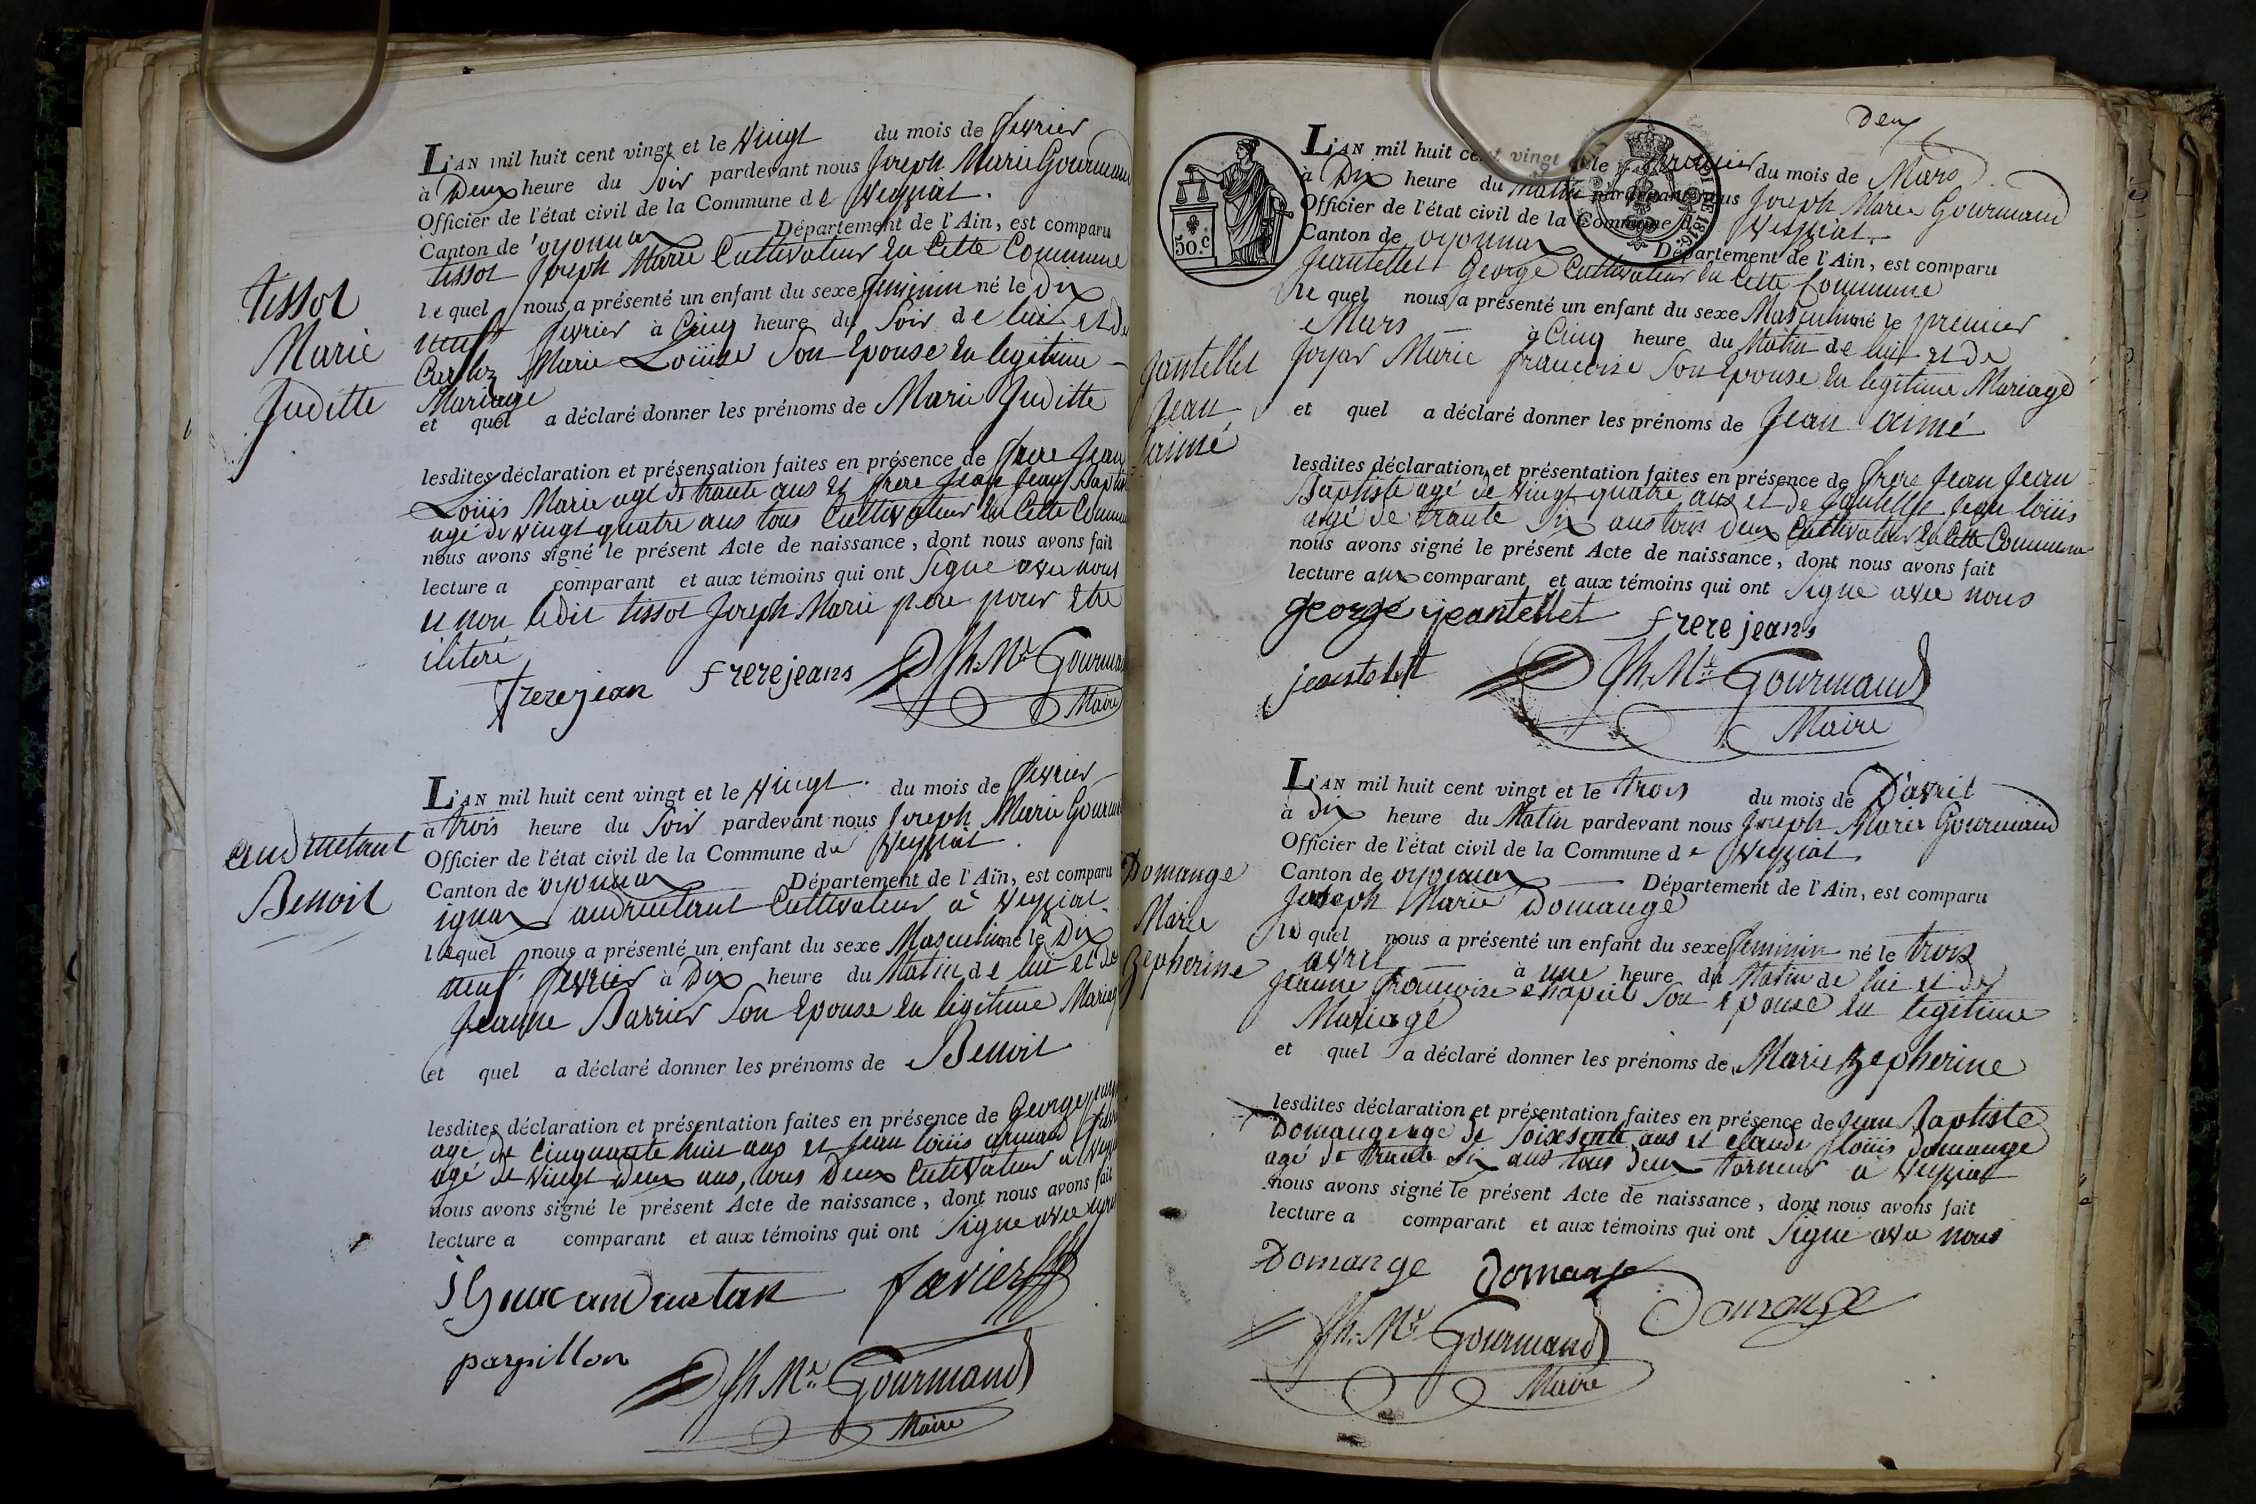 Tissot
Marie
Juditte
L'AN mil huit cent vingt et le Vingt du mois de fevrier
à Deux heure du Soir pardevant nous Joseph Marie Gourmand
Officier de l'état civil de la Commune de Veyziat.
Canton de oyonnax Département de l'Ain, est comparu
tissot Joseph Marie Cultivateur en Cette Commune
lequel nous a présenté un enfant du sexe feminin né le Dix
neuf fevrier à Cinq heure du Soir de lui et de
Marie Louise Son Epouse en legitime
Mariage
et quel a déclaré donner les prénoms de Marie Juditte
lesdites déclaration et présensation faites en présence de frere Jean
Louis Marie agé de trante ans et frere Jean Jean Baptiste
agé de vingt quatre ans tous Cultivateur en Cette Commune
nous avons signé le présent Acte de naissance, dont nous avons fait
lecture a comparant et aux témoins qui ont Signe avec nous
et non ledit tissot Joseph Marie pere pour etre
iliteré
frerejean frerejeans Jh. Me Gourmand
Maire
andruetant
Benoit
L'AN mil huit cent vingt et le Vingt du mois de fevrier
à trois heure du Soir pardevant nous Joseph Marie Gourmand
Officier de l'état civil de la Commune de Veyziat.
Canton de oyonnax Département de l'Ain, est comparu
ignax andruetant Cultivateur à Veyziat
lequel nous a présenté un enfant du sexe Masculin né le Dix
neuf fevrier à Dix heure du Matin de lui et de
Jeanne Barrier Son Epouse en legitime Mariage
et quel a déclaré donner les prénoms de Benoit
lesdites déclaration et présentation faites en présence de George
agé de Cinquante huit ans et Jean louis armand
agé de Vingt Deux ans, tous Deux Cultivateur à
nous avons signé le présent Acte de naissance, dont nous avons fait
lecture a comparant et aux témoins qui ont Signe avec nous
favier
parpillon
Jh Me Gourmand
Maire
Deux
L'AN mil huit cent vingt et le premier du mois de Mars
à Dix heure du Matin pardevant nous Joseph Marie Gourmand
Officier de l'état civil de la Commune de Veyziat.
Canton de oyonnax Département de l'Ain, est comparu
50.c
1816.
Jeantellet George Cultivateur en Cette Commune
le quel nous a présenté un enfant du sexe Masculin né le premier
Mars à Cinq heure du Matin de lui et de
Joyar Marie francoise Son Epouse en legitime Mariage
Jantellet
Jean
aimé
et quel a déclaré donner les prénoms de Jean aimé
lesdites déclaration et présentation faites en présence de frere Jean Jean
Baptiste agé de Vingt quatre ans et de Jantellet Jean louis
agé de trante Six ans tous deux Cultivateur en Cette Commune
nous avons signé le présent Acte de naissance, dont nous avons fait
lecture aux comparant et aux témoins qui ont Signe avec nous
george jeantellet frere jeans
Jh. Me Gourmand
Maire
L'AN mil huit cent vingt et le trois du mois de D'avril
à Dix heure du Matin pardevant nous Joseph Marie Gourmand
Officier de l'état civil de la Commune de Veyziat.
Canton de oyonnax Département de l'Ain, est comparu
Joseph Marie Domange
Domange
Marie
Zepherine
le quel nous a présenté un enfant du sexe feminin né le trois
avril à une heure du Matin de lui et de
Jeanne francoise chapuis Son epouse en legitime
Mariage
et quel a déclaré donner les prénoms de Marie Zepherine
lesdites déclaration et présentation faites en présence de Jean Baptiste
Domange age de Soixsente ans et claude louis domange
agé de trante Six ans tous deux torneur a Veyziat
nous avons signé le présent Acte de naissance, dont nous avons fait
lecture a comparant et aux témoins qui ont Signe avec nous
Domange Domange Domange
Jh. Me Gourmand
Maire